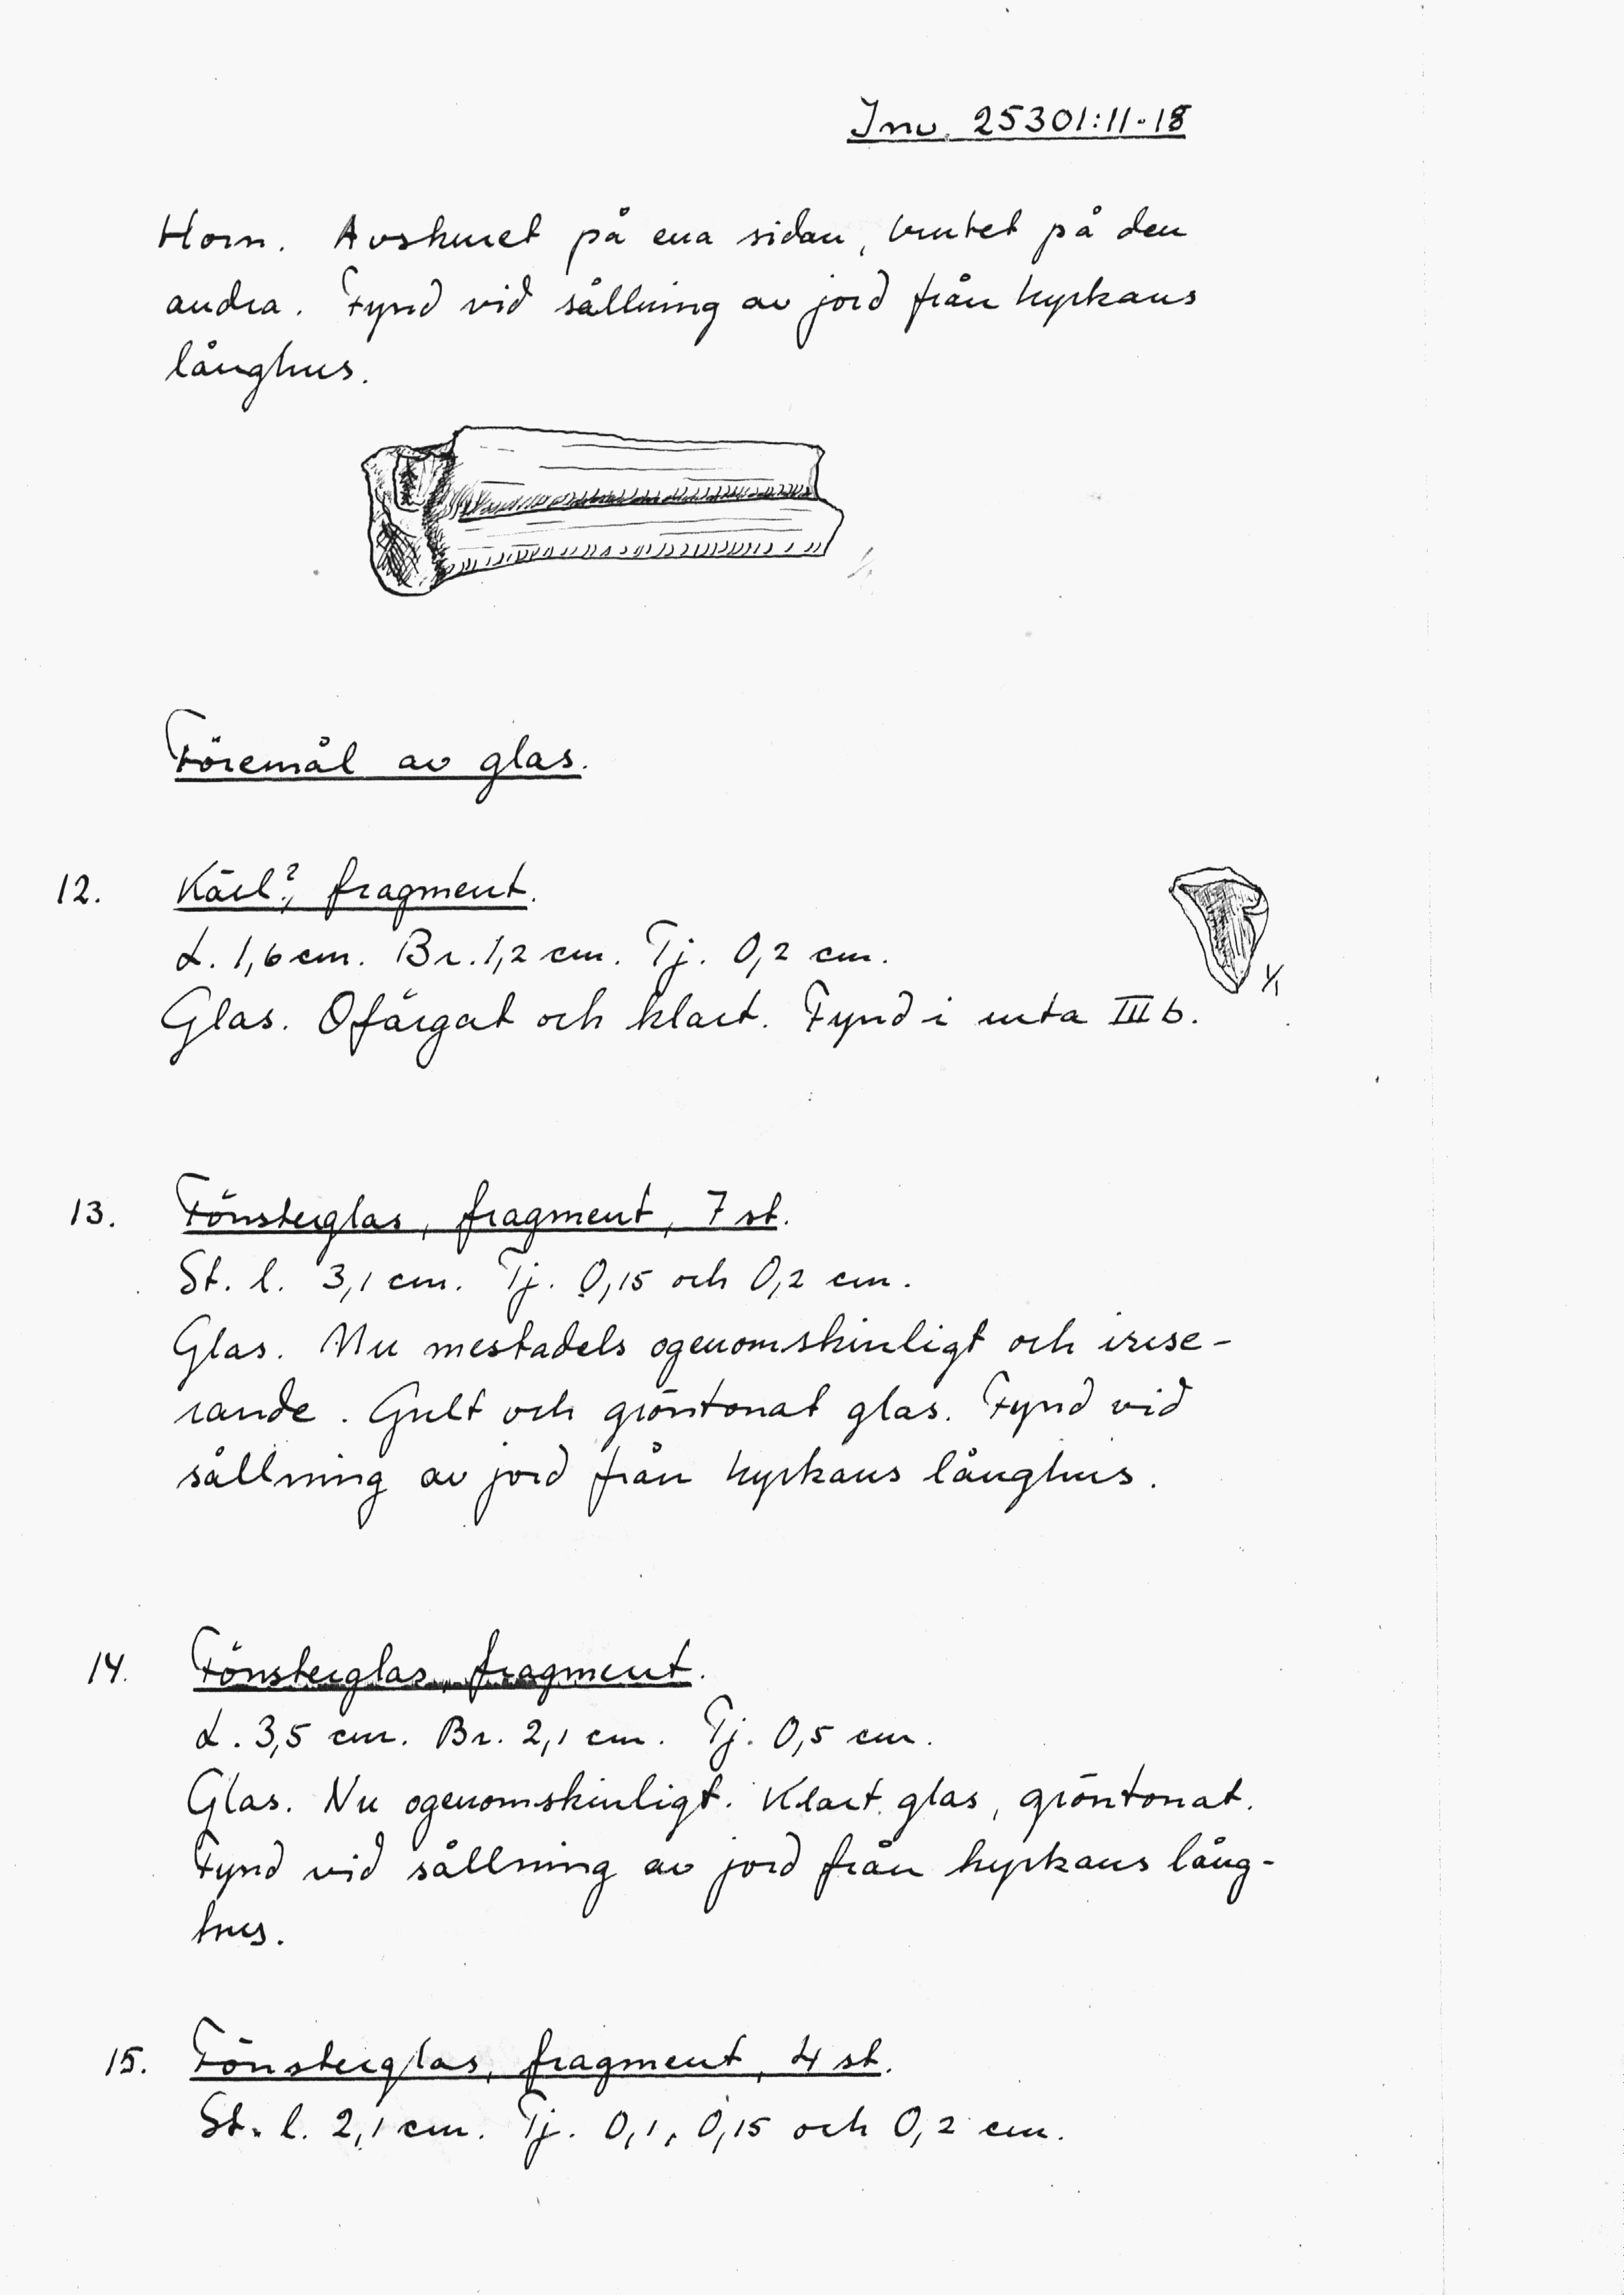 Inv. 25301:11-18
Horn. Avskuret på ena sidan, brutet på den
andra. Fynd vid sållning av jord från kyrkans
långhus.
Föremål av glas.
12. Kärl?, fragment.
L. 1,6 cm. Br. 1,2 cm. Tj. 0,2 cm.
1/1
Glas. Ofärgat och klart. Fynd i ruta III b.
13. Fönsterglas, fragment, 7 st.
St. l. 3,1 cm. Tj. 0,15 och 0,2 cm.
Glas. Nu mestadels ogenomskinligt och irise-
rande. Gult och gröntonat glas. Fynd vid
sållning av jord från kyrkans långhus.
14. Fönsterglas, fragment.
L. 3,5 cm. Br. 2,1 cm. Tj. 0,5 cm.
Glas. Nu ogenomskinligt. Klart glas, gröntonat.
Fynd vid sållning av jord från kyrkans lång-
hus.
15. Fönsterglas, fragment, 4 st.
St. l. 2,1 cm. Tj. 0,1, 0,15 och 0,2 cm.